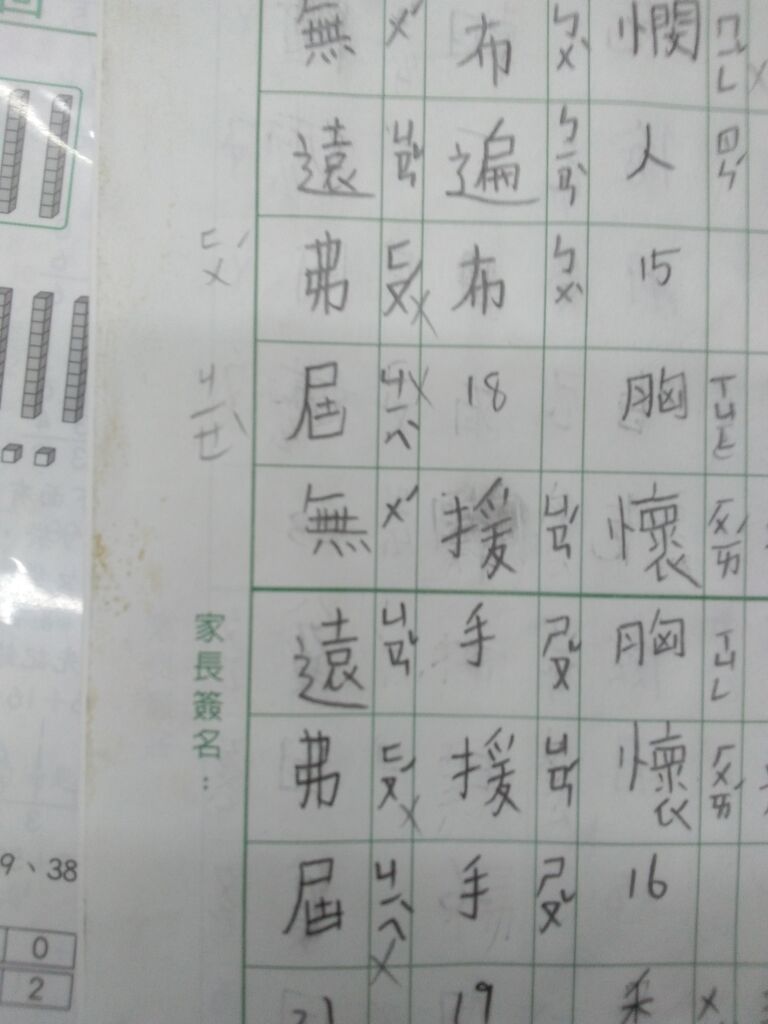 憫
人 ㄖㄣˊ
15
胸 ㄒㄩㄥ
懷 ㄏㄨㄞˊ
胸 ㄒㄩㄥ
懷 ㄏㄨㄞˊ
16
布 ㄅㄨˋ
遍 ㄅㄧㄢˋ
布 ㄅㄨˋ
18
援 ㄩㄢˊ
手 ㄕㄡˇ
援 ㄩㄢˊ
手 ㄕㄡˇ
19
無 ㄨˊ
遠 ㄩㄢˇ
弗 ㄈㄡˊ
屆 ㄐㄧㄟˋ
無 ㄨˊ
遠 ㄩㄢˇ
弗 ㄈㄡˊ
屆 ㄐㄧㄟˋ
21
ㄈㄨˊ
ㄐㄧㄝˋ
家長簽名：
9、38
0
2